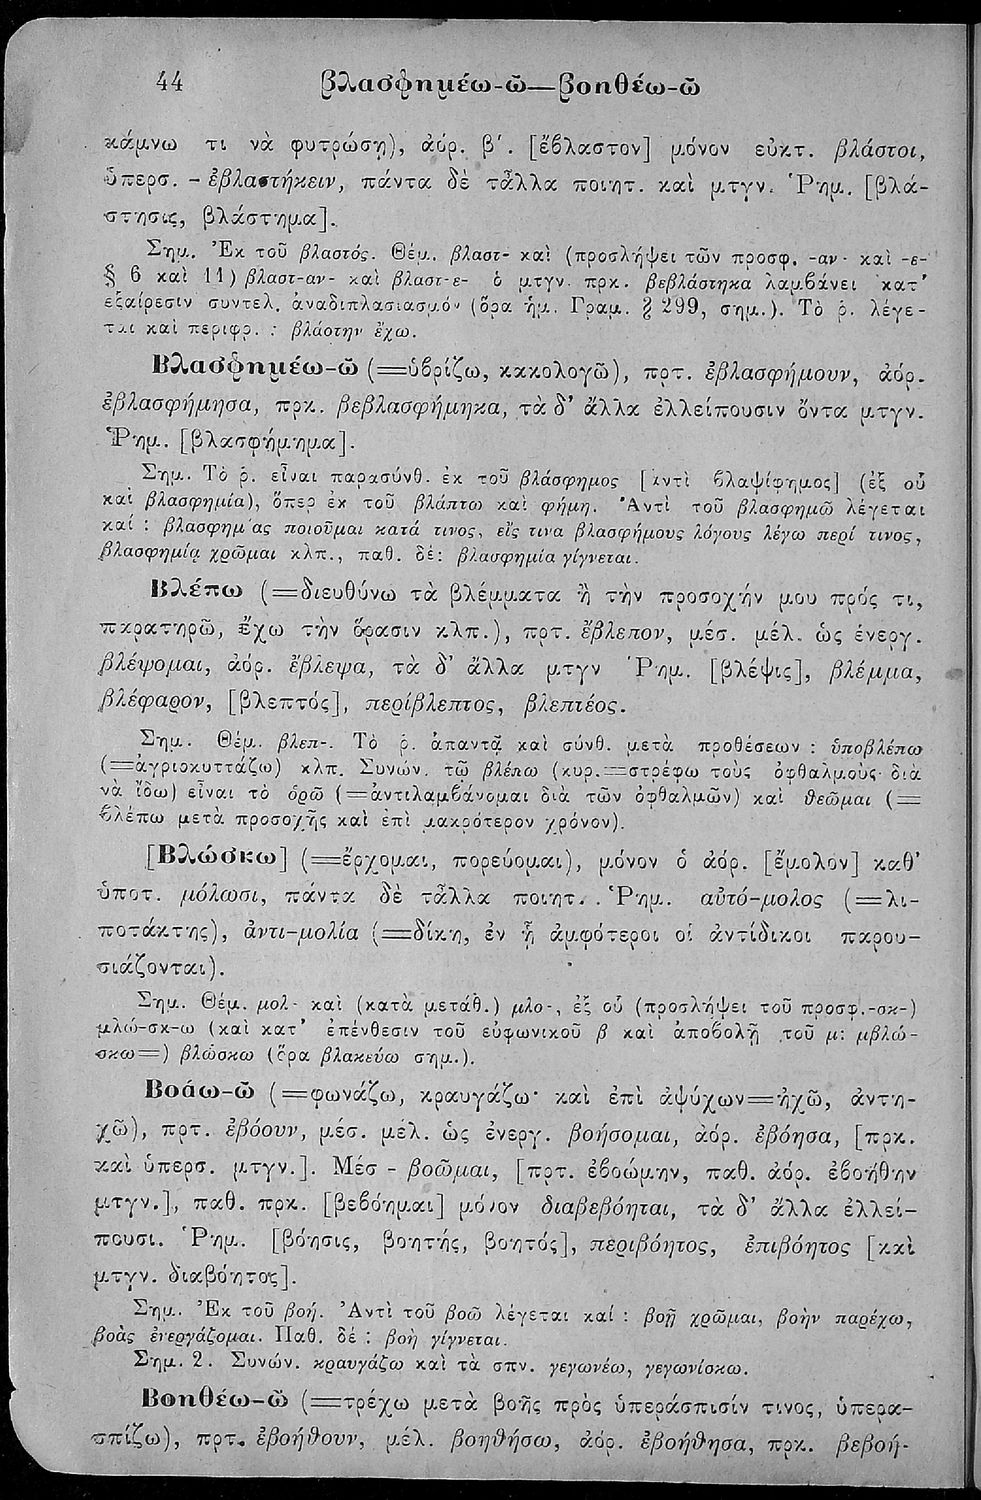 44 βλασφημέω-ῶ—βοηθέω-ῶ
κάμνω τι νὰ φυτρώσῃ), ἀόρ. β΄. [ἔβλαστον] μόνον εὐκτ. βλάστοι,
ὑπερσ. - ἐβλαστήκειν, πάντα δὲ τἆλλα ποιητ. καὶ μτγν. Ῥημ. [βλά-
στησις, βλάστημα].
Σημ. Ἐκ τοῦ βλαστός. Θέμ. βλαστ- καὶ (προσλήψει τῶν προσφ. -αν- καὶ -ε-
§ 6 καὶ 11) βλαστ-αν- καὶ βλαστ-ε- ὁ μτγν. πρκ. βεβλάστηκα λαμβάνει κατ’
ἐξαίρεσιν συντελ. ἀναδιπλασιασμὸν (ὅρα ἡμ. Γραμ. § 299, σημ.). Τὸ ῥ. λέγε-
ται καὶ περιφρ. : βλάστην ἔχω.
Βλασφημέω-ῶ (=ὑβρίζω, κακολογῶ), πρτ. ἐβλασφήμουν, ἀόρ.
ἐβλασφήμησα, πρκ. βεβλασφήμηκα, τὰ δ’ ἄλλα ἐλλείπουσιν ὄντα μτγν.
Ῥημ. [βλασφήμημα].
Σημ. Τὸ ῥ. εἶναι παρασύνθ. ἐκ τοῦ βλάσφημος [ἀντὶ βλαψίφημος] (ἐξ οὗ
καὶ βλασφημία), ὅπερ ἐκ τοῦ βλάπτω καὶ φήμη. Ἀντὶ τοῦ βλασφημῶ λέγεται
καί : βλασφημίας ποιοῦμαι κατά τινος, εἴς τινα βλασφήμους λόγους λέγω περί τινος,
βλασφημίᾳ χρῶμαι κλπ., παθ. δέ: βλασφημία γίγνεται.
Βλέπω (=διευθύνω τὰ βλέμματα ἢ τὴν προσοχήν μου πρός τι,
παρατηρῶ, ἔχω τὴν ὅρασιν κλπ.), πρτ. ἔβλεπον, μέσ. μέλ. ὡς ἐνεργ.
βλέψομαι, ἀόρ. ἔβλεψα, τὰ δ’ ἄλλα μτγν Ῥημ. [βλέψις], βλέμμα,
βλέφαρον, [βλεπτός], περίβλεπτος, βλεπτέος.
Σημ. Θέμ. βλεπ-. Τὸ ῥ. ἀπαντᾷ καὶ σύνθ. μετὰ προθέσεων : ὑποβλέπω
(=ἀγριοκυττάζω) κλπ. Συνών. τῷ βλέπω (κυρ.=στρέφω τοὺς ὀφθαλμοὺς διὰ
νὰ ἴδω) εἶναι τὸ ὁρῶ (=ἀντιλαμβάνομαι διὰ τῶν ὀφθαλμῶν) καὶ θεῶμαι (=
βλέπω μετὰ προσοχῆς καὶ ἐπὶ μακρότερον χρόνον).
[Βλώσκω] (=ἔρχομαι, πορεύομαι), μόνον ὁ ἀόρ. [ἔμολον] καθ’
ὑποτ. μόλωσι, πάντα δὲ τἆλλα ποιητ. . Ῥημ. αὐτό-μολος (=λι-
ποτάκτης), ἀντι-μολία (=δίκη, ἐν ᾗ ἀμφότεροι οἱ ἀντίδικοι παρου-
σιάζονται).
Σημ. Θέμ. μολ- καὶ (κατὰ μετάθ.) μλο-, ἐξ οὗ (προσλήψει τοῦ προσφ.-σκ-)
μλώ-σκ-ω (καὶ κατ’ ἐπένθεσιν τοῦ εὐφωνικοῦ β καὶ ἀποβολῇ τοῦ μ: μβλώ-
σκω=) βλώσκω (ὅρα βλακεύω σημ.).
Βοάω-ῶ (=φωνάζω, κραυγάζω· καὶ ἐπὶ ἀψύχων=ἠχῶ, ἀντη-
χῶ), πρτ. ἐβόουν, μέσ. μέλ. ὡς ἐνεργ. βοήσομαι, ἀόρ. ἐβόησα, [πρκ.
καὶ ὑπερσ. μτγν.]. Μέσ - βοῶμαι, [πρτ. ἐβοώμην, παθ. ἀόρ. ἐβοήθην
μτγν.], παθ. πρκ. [βεβόημαι] μόνον διαβεβόηται, τὰ δ’ ἄλλα ἐλλεί-
πουσι. Ῥημ. [βόησις, βοητής, βοητός], περιβόητος, ἐπιβόητος [καὶ
μτγν. διαβόητος].
Σημ. Ἐκ τοῦ βοή. Ἀντὶ τοῦ βοῶ λέγεται καί : βοῇ χρῶμαι, βοὴν παρέχω,
βοὰς ἐνεργάζομαι. Παθ. δέ : βοὴ γίγνεται.
Σημ. 2. Συνών. κραυγάζω καὶ τὰ σπν. γεγωνέω, γεγωνίσκω.
Βοηθέω-ῶ (=τρέχω μετὰ βοῆς πρὸς ὑπεράσπισίν τινος, ὑπερα-
σπίζω), πρτ. ἐβοήθουν, μέλ. βοηθήσω, ἀόρ. ἐβοήθησα, πρκ. βεβοή-